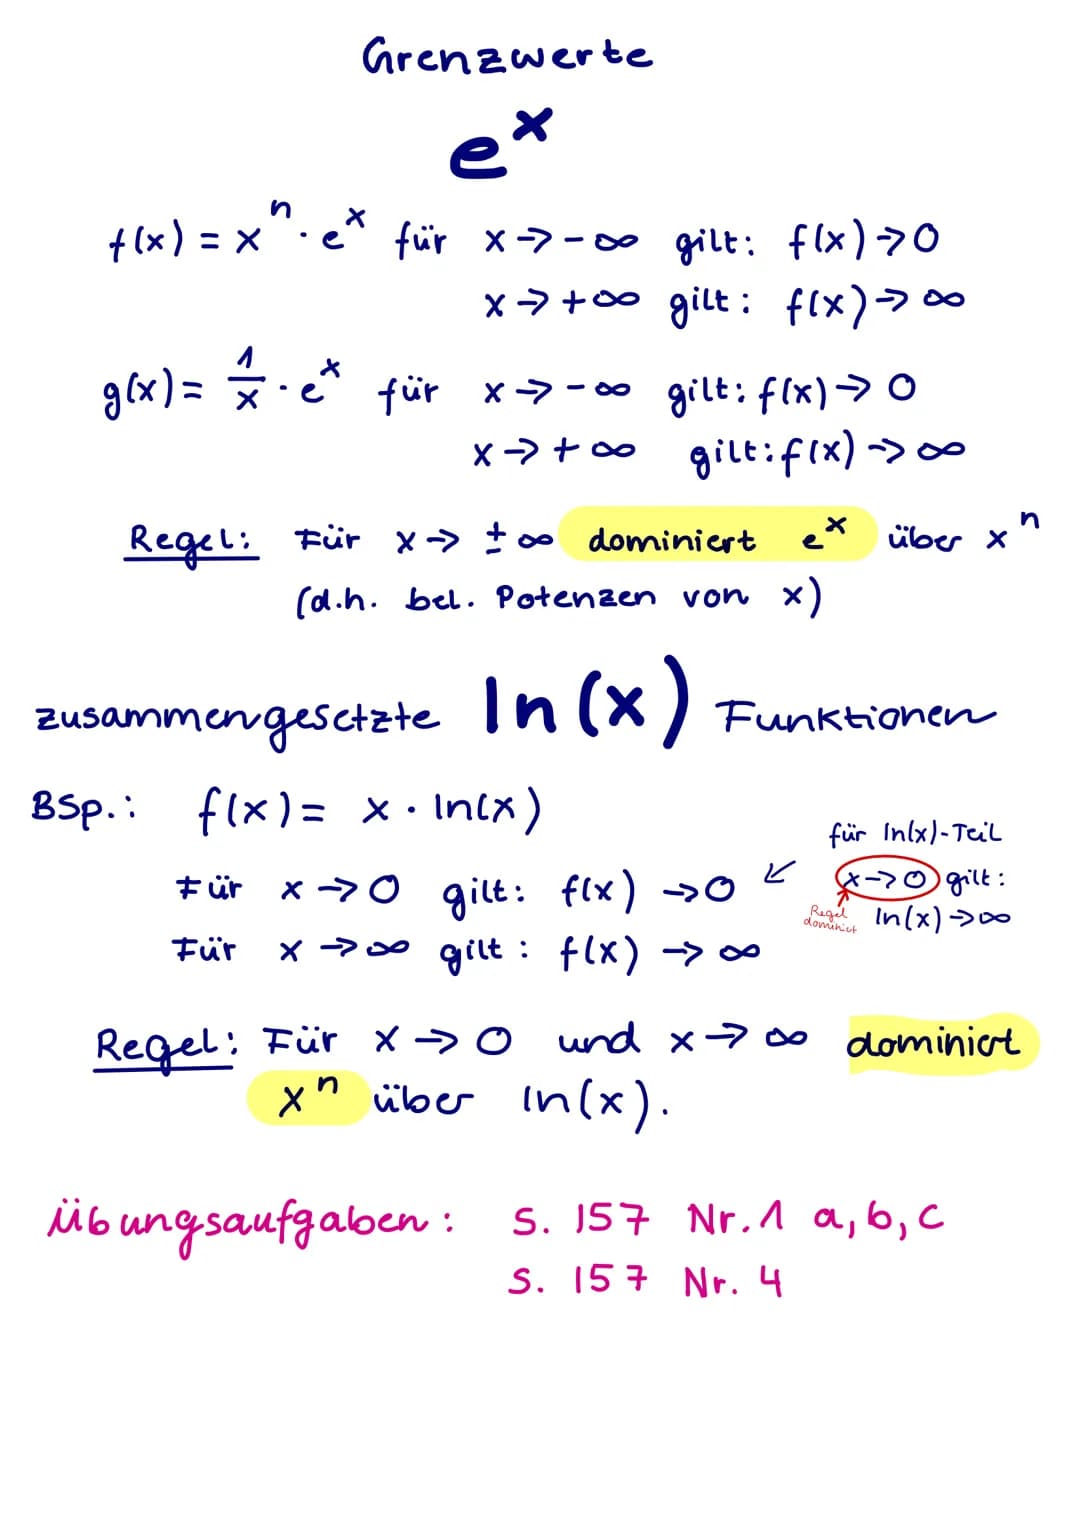 Grenzwerte
eˣ
f(x) = xⁿ · eˣ für x → -∞ gilt: f(x) → 0
x → +∞ gilt: f(x) → ∞
g(x) = 1/x · eˣ für x → -∞ gilt: f(x) → 0
x → +∞ gilt: f(x) → ∞
Regel: Für x → ±∞ dominiert eˣ über xⁿ
(d.h. bel. Potenzen von x)
zusammengesetzte ln(x) Funktionen
BSp.: f(x) = x · ln(x)
für ln(x)-Teil
Für x → 0 gilt: f(x) → 0 ↙ x → 0 gilt:
Regel dominiert ln(x) → ∞
Für x → ∞ gilt: f(x) → ∞
Regel: Für x → 0 und x → ∞ dominiert
xⁿ über ln(x).
Übungsaufgaben: S. 157 Nr. 1 a, b, c
S. 157 Nr. 4